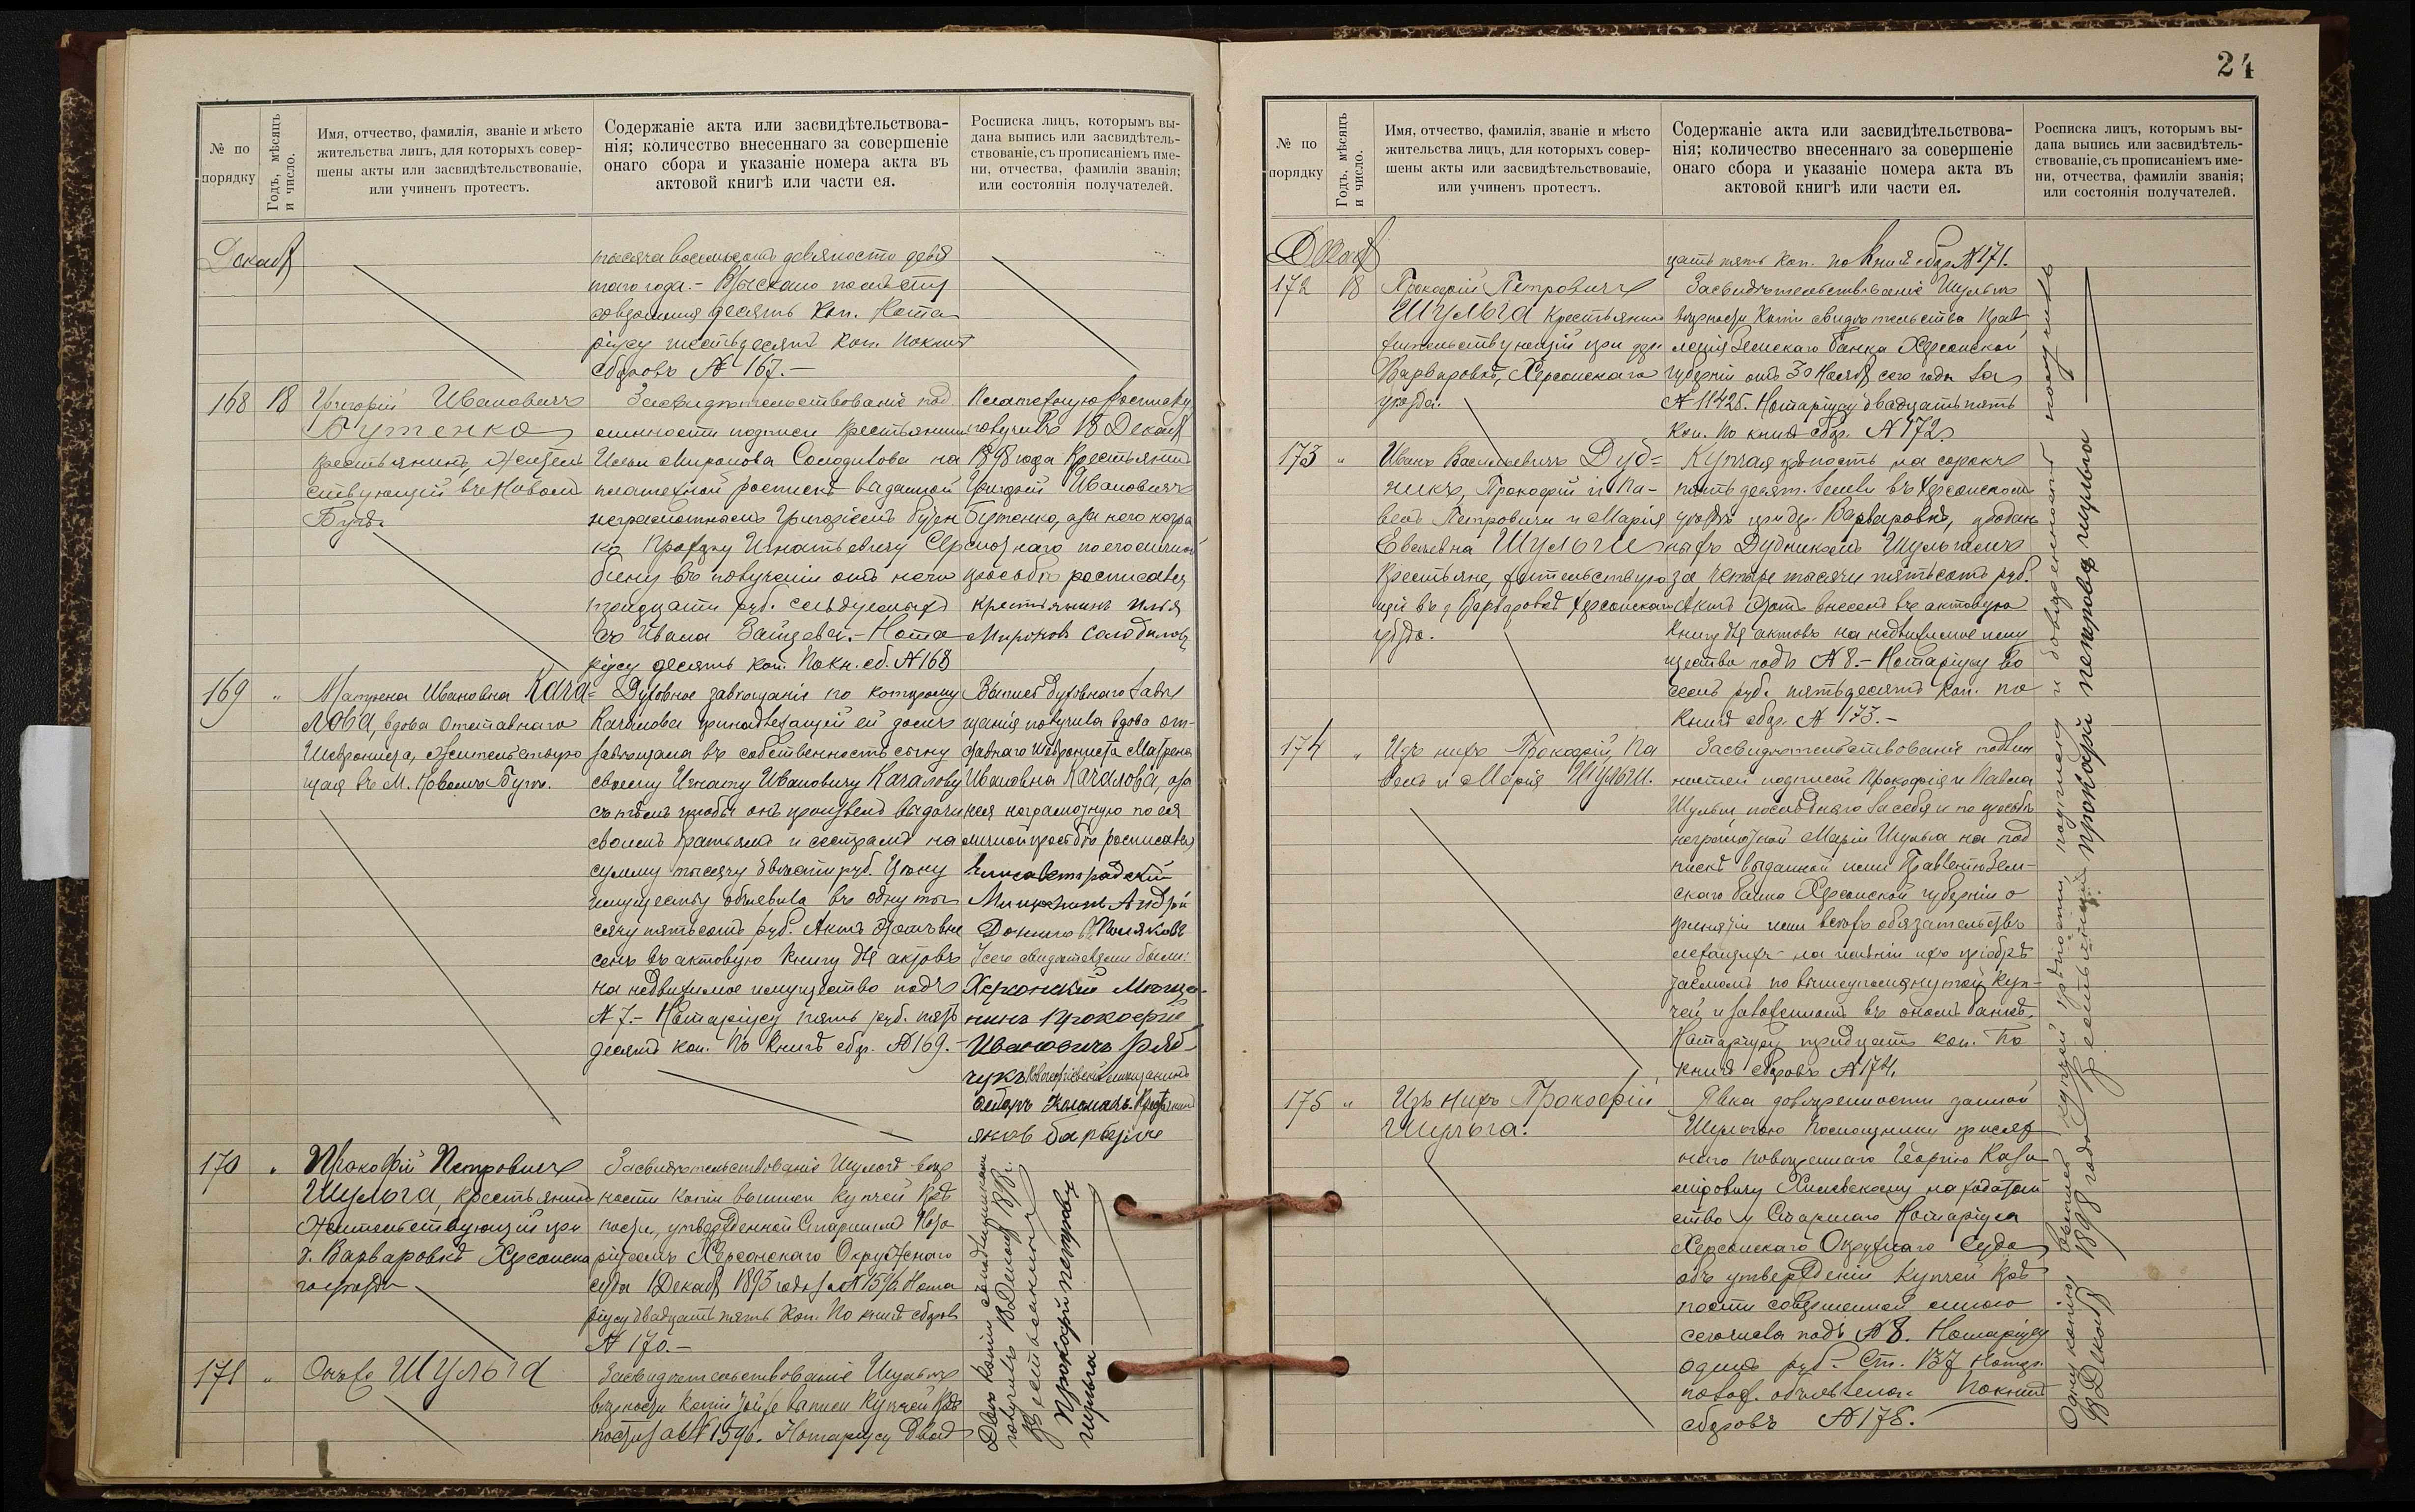 № по порядку
Годъ, мѣсяцъ и число.
Имя, отчество, фамилія, званіе и мѣсто
жительства лицъ, для которыхъ совер-
шены акты или засвидѣтельствованіе,
или учиненъ протестъ.
Содержаніе акта или засвидѣтельствова-
нія; количество внесеннаго за совершеніе
онаго сбора и указаніе номера акта въ
актовой книгѣ или части ея.
Росписка лицъ, которымъ вы-
дана выпись или засвидѣтель-
ствованіе, съ прописаніемъ име-
ни, отчества, фамиліи званія;
или состоянія получателей.
Декабр
тысяча восемьсотъ девяносто девя
таго года. – Взыскано
десять коп. Нота
ріусу шестьдесятъ коп. По книгѣ
сборовъ № 167. –
168 18
Григорій Ивановичъ
Бутенко
крестьянинъ, житель
ствующій въ Новомъ
Бугѣ.
Засвидѣтельствованіе под
линности подписи крестьянина
Ильи Миронова Солодилова на
платежной роспискѣ выданной
неграмотнымъ Григоріемъ Бутен
ко Игнатьевичу Сер
бину въ полученіи отъ него
тридцати руб. слѣдуемыхъ
съ Ивана Зайцева. – Нота
ріусу десять коп. По кн. сб. № 168
Платежную росписку
получилъ 18 Декабр
1898 года крестьянинъ
Григорій Ивановичъ
Бутенко, а за него негра
мотнаго по его личной
просьбѣ росписался
крестьянинъ Илья
Мироновъ Солодиловъ
169 "
Матрена Ивановна Кача=
лова, вдова отставнаго
Шеврониста, жительствую
щая въ м. Новомъ Бугѣ.
Духовное завѣщаніе по которому
Качалова принадлежащій ей домъ
завѣщала въ собственность сыну
своему Игнату Ивановичу Качалову
съ тѣмъ чтобы онъ произвелъ выдачи
своимъ братьямъ и сестрамъ на
сумму тысячу двѣсти руб. Цѣну
имуществу объявила въ одну ты
сячу пятьсотъ руб. Актъ этотъ вне
сенъ въ актовую книгу для актовъ
на недвижимое имущество подъ
№ 7. – Нотаріусу пять руб. пять
десятъ коп. По книгѣ сбр. № 169. –
Выпись духовнаго завѣ
щанія получила вдова от-
ставнаго шеврониста Матрена
Ивановна Качалова, а за
нея неграмотную по ея
личной просьбѣ росписался
Елисаветградскій
Мещанинъ Андрей
Поляковъ
сего свидѣтелями были:
Херсонскій Мѣща-
нинъ Прокофій
Ивановичъ Ряб-
чукъ мѣщанинъ
Яковъ
170 "
Прокофій Петровичъ
Шульга, крестьянинъ
жительствующій при
д. Варваровкѣ Херсонска
го уѣзда
Засвидѣтельствованіе Шульгѣ вѣр
ности копіи выписи купчей крѣ
пости, утвержденной Старшимъ Нота
ріусомъ Херсонскаго Окружнаго
суда 1 Декабр 1893 года за № 1596. Нота
ріусу двадцать пять коп. По книгѣ сборовъ
№ 170. –
171 "
Онъ же Шульга
Засвидѣтельствованіе Шульгѣ
вѣрности копіи той же выписи купчей крѣ
пости за № 1596. Нотаріусу двад
Двѣ копіи
получилъ 18 Декабр 1898 г.
крестьянинъ
Прокофій Петровъ
Шульга
24
№ по порядку
Годъ, мѣсяцъ и число.
Имя, отчество, фамилія, званіе и мѣсто
жительства лицъ, для которыхъ совер-
шены акты или засвидѣтельствованіе,
или учиненъ протестъ.
Содержаніе акта или засвидѣтельствова-
нія; количество внесеннаго за совершеніе
онаго сбора и указаніе номера акта въ
актовой книгѣ или части ея.
Росписка лицъ, которымъ вы-
дана выпись или засвидѣтель-
ствованіе, съ прописаніемъ име-
ни, отчества, фамиліи званія;
или состоянія получателей.
Декабр
цать пять коп. по книгѣ сбор. № 171.
172 18
Прокофій Петровичъ
Шульга крестьянинъ
жительствующій при дер.
Варваровкѣ, Херсонскаго
уѣзда.
Засвидѣтельствованіе Шульгѣ
вѣрности копіи свидѣтельства Прав
ленія Земскаго банка Херсонской
губерніи отъ 30 Ноябр сего года за
№ 11425. Нотаріусу двадцать пять
коп. По книгѣ сбор. № 172.
173 "
Иванъ Васильевичъ Дуд=
никъ, Прокофій и Па-
велъ Петровичи и Марія
Евсеевна Шульги
крестьяне, жительствую
щіе въ д. Варваровкѣ Херсонскаго
уѣзда.
Купчая крѣпость на сорокъ
пять десят. земли въ Херсонскомъ
уѣздѣ при дер. Варваровкѣ, продан
ныхъ Дудникомъ Шульгамъ
за четыре тысячи пятьсотъ руб.
Актъ этотъ внесенъ въ актовую
книгу для актовъ на недвижимое иму
щество подъ № 8. – Нотаріусу во
семь руб. пятьдесятъ коп. по
книгѣ сбор. № 173. –
174 "
Изъ нихъ Прокофій, Па
велъ и Марія Шульги.
Засвидѣтельствованіе подлин
ностей подписей Прокофія и Павла
Шульги, послѣдняго за себя и по просьбѣ
неграмотной Маріи Шульга на под
пискѣ выданной ими Правленію Зем-
скаго банка Херсонской губерніи о
принятіи ими всѣхъ обязательствъ
лежащихъ на имѣніи ихъ пріобрѣ
таемомъ по вышеупомянутой куп-
чей и заложенномъ въ ономъ банкѣ.
Нотаріусу тридцать коп. По
книгѣ сборовъ № 174.
175 "
Изъ нихъ Прокофій
Шульга.
Явка довѣренности данной
Шульгою помощнику присяж
наго повѣреннаго Георгію Кази
міровичу Хмелевскому на ходатай
ство у Старшаго Нотаріуса
Херсонскаго Окружнаго Суда
объ утвержденіи купчей крѣ
пости совершенной мною
сего числа подъ № 8. Нотаріусу
одинъ руб. – Ст. 137 Нотар.
полож. объявлена. По книгѣ
сборовъ № 175.
Одну копію, выпись купчей крѣпости, подписку и довѣренность получилъ
18 Декабр 1898 года крестьянинъ Прокофій Петровъ Шульга